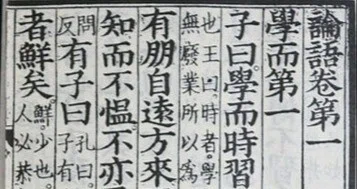 論語卷第一
學而第一
子曰學而時習
也王曰時者學
無廢業所以為
有朋自遠方來
知而不慍不亦
問
反
有子曰
孔曰
子有
者鮮矣
鮮少也
人必恭